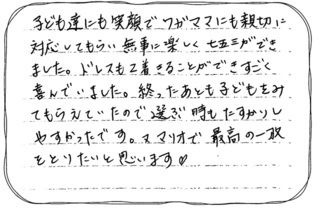 子ども達にも笑顔でワガママにも親切に
対応してもらい無事に楽しく七五三ができ
ました。ドレスも2着きることができすごく
喜んでいました。終ったあとも子どもをみ
てもらえていたので選ぶ時もたすかりし
やすかったです。又マリオで最高の一枚
をとりたいと思います♡